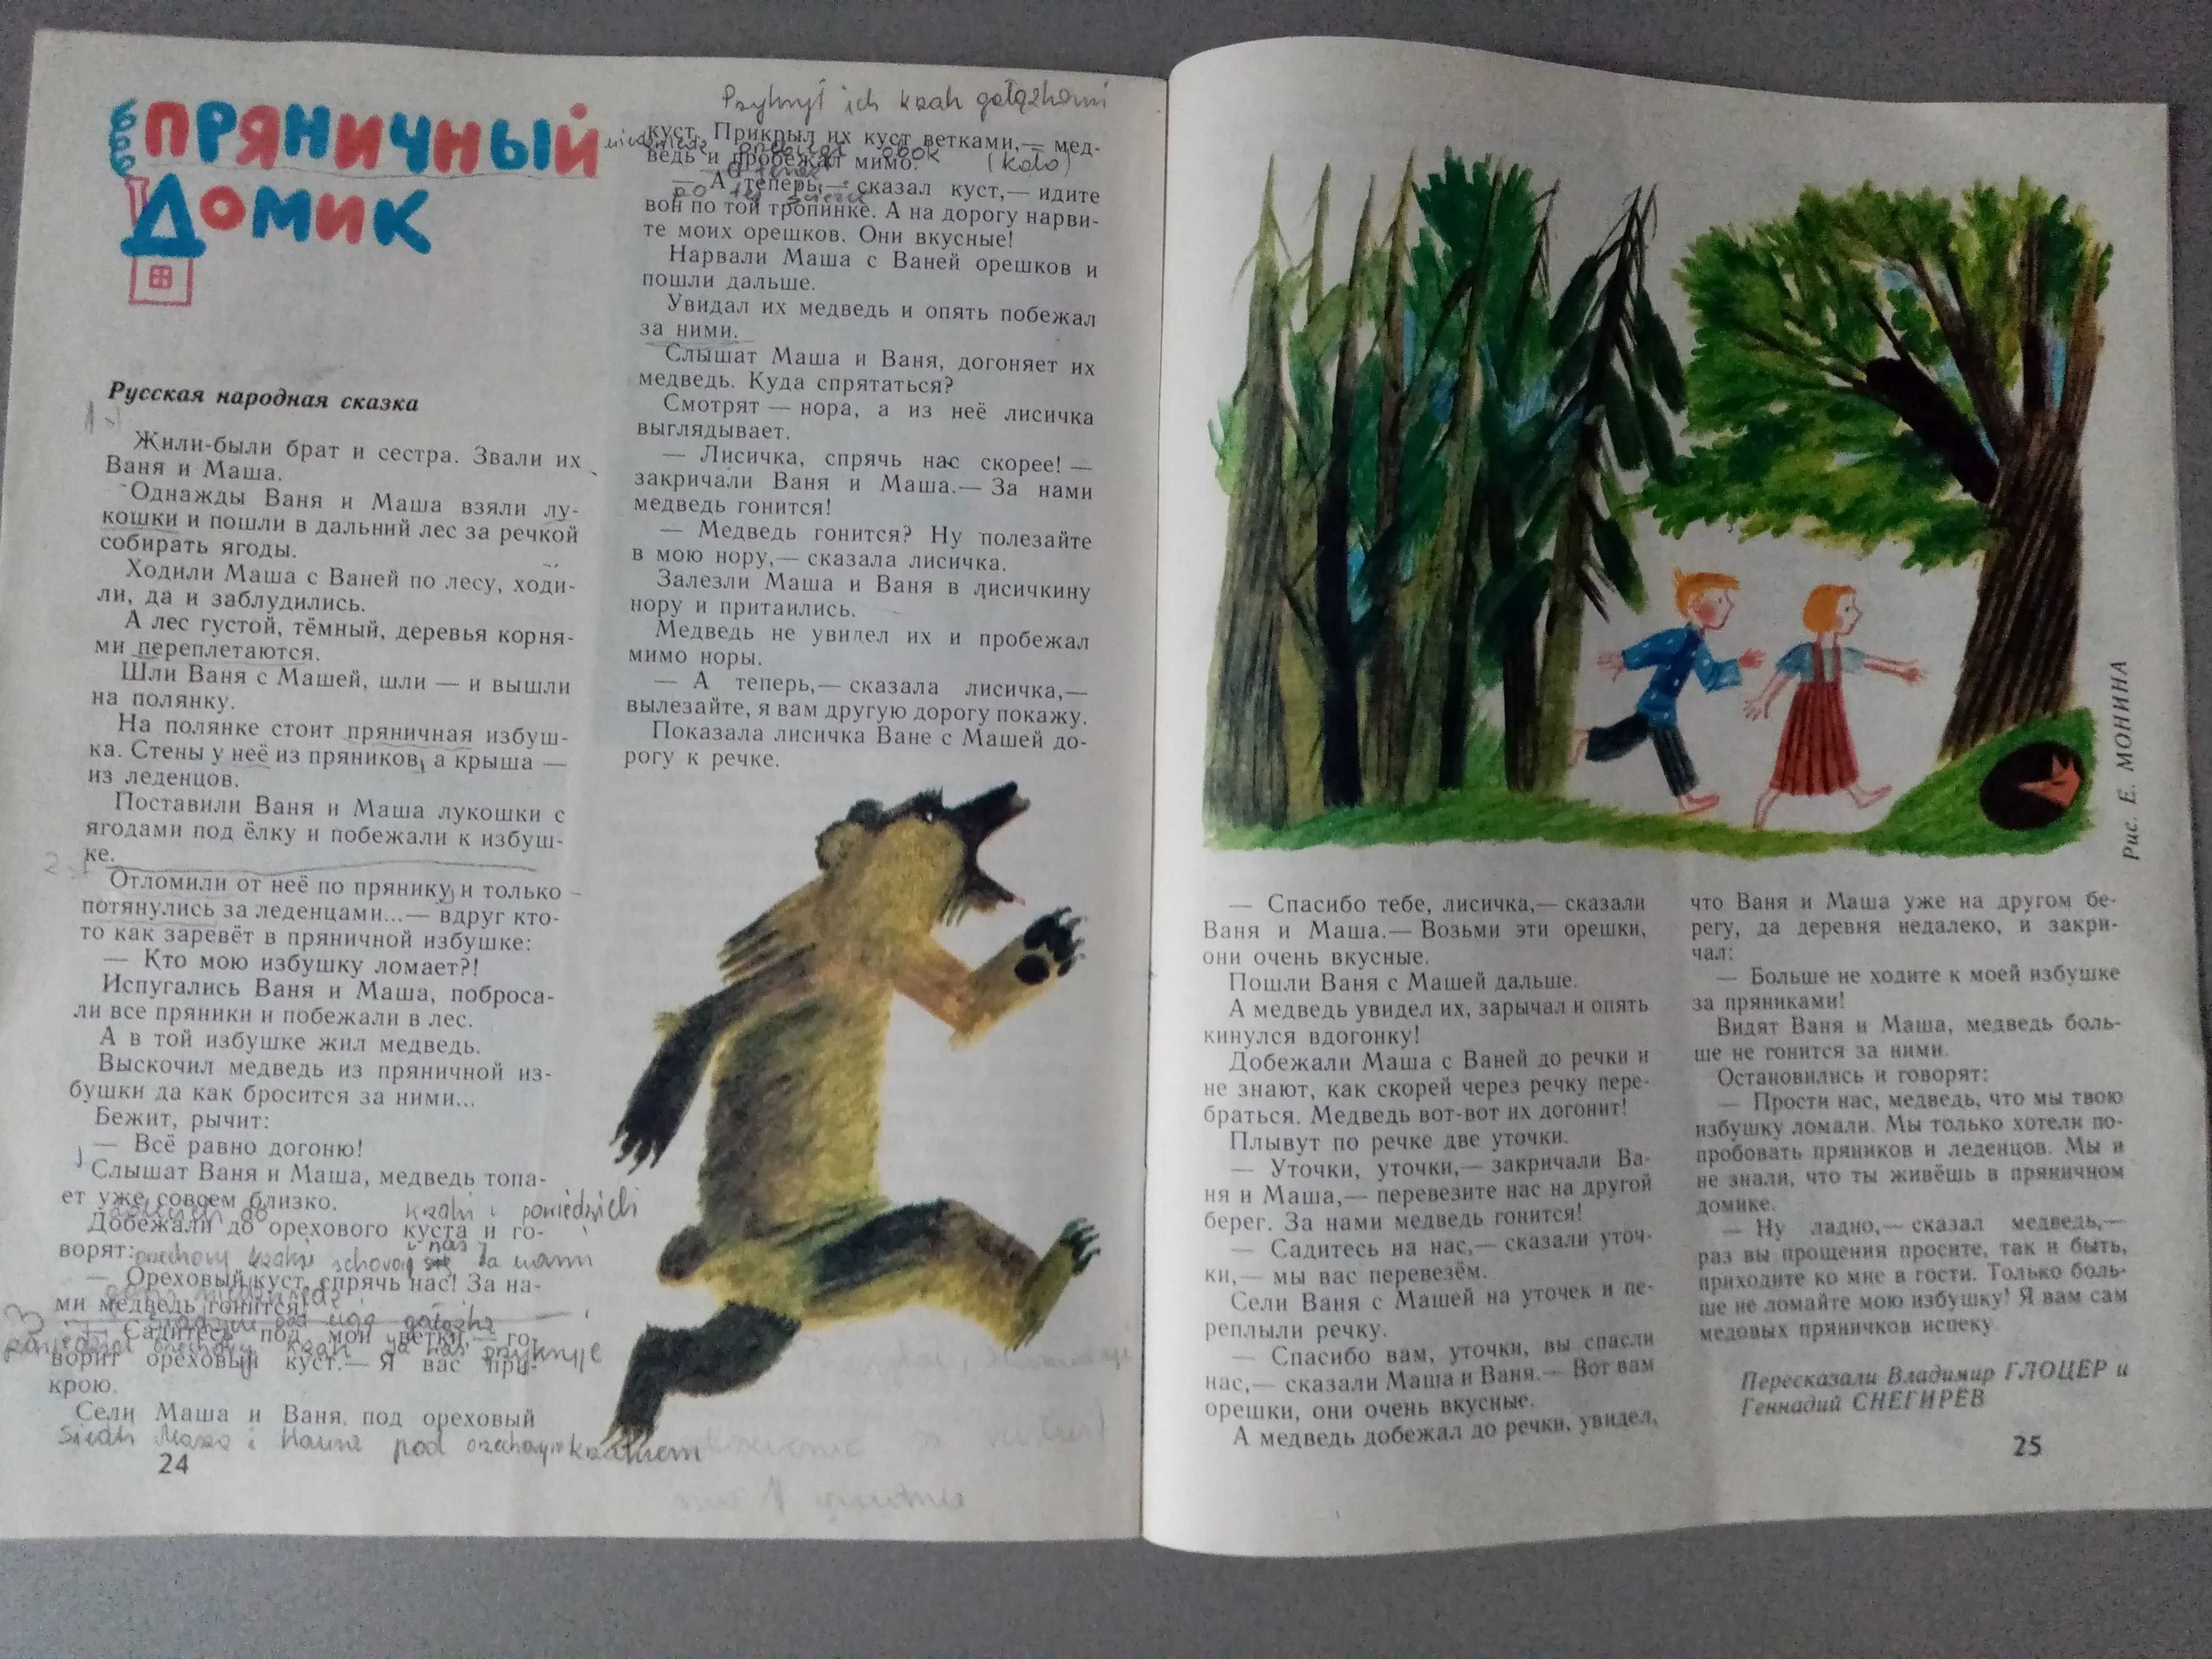 ПРЯНИЧНЫЙ
ДОМИК
Русская народная сказка
Жили-были брат и сестра. Звали их
Ваня и Маша.
Однажды Ваня и Маша взяли лу-
кошки и пошли в дальний лес за речкой
собирать ягоды.
Ходили Маша с Ваней по лесу, ходи-
ли, да и заблудились.
А лес густой, тёмный, деревья корня-
ми переплетаются.
Шли Ваня с Машей, шли — и вышли
на полянку.
На полянке стоит пряничная избуш-
ка. Стены у неё из пряников, а крыша —
из леденцов.
Поставили Ваня и Маша лукошки с
ягодами под ёлку и побежали к избуш-
ке.
Отломили от неё по прянику и только
потянулись за леденцами...— вдруг кто-
то как заревёт в пряничной избушке:
— Кто мою избушку ломает?!
Испугались Ваня и Маша, поброса-
ли все пряники и побежали в лес.
А в той избушке жил медведь.
Выскочил медведь из пряничной из-
бушки да как бросится за ними...
Бежит, рычит:
— Всё равно догоню!
Слышат Ваня и Маша, медведь топа-
ет уже совсем близко.
krzaku i powiedzieli
Добежали до орехового куста и го-
ворят:
orzechowy krzaku schowaj się nas za nami
— Ореховый куст, спрячь нас! За на-
ми медведь гонится!
3
— Садитесь под мои ветки,— го-
ворит ореховый куст.— Я вас при-
крою.
Сели Маша и Ваня под ореховый
Siedli Masza i Wania pod orzechowym krzakiem
24
Przykrył ich krzak gałązkami
куст. Прикрыл их куст ветками,— мед-
ведь и пробежал мимо.
obok (koło)
— А теперь,— сказал куст,— идите
вон по той тропинке. А на дорогу нарви-
те моих орешков. Они вкусные!
Нарвали Маша с Ваней орешков и
пошли дальше.
Увидал их медведь и опять побежал
за ними.
Слышат Маша и Ваня, догоняет их
медведь. Куда спрятаться?
Смотрят — нора, а из неё лисичка
выглядывает.
— Лисичка, спрячь нас скорее! —
закричали Ваня и Маша.— За нами
медведь гонится!
— Медведь гонится? Ну полезайте
в мою нору,— сказала лисичка.
Залезли Маша и Ваня в лисичкину
нору и притаились.
Медведь не увидел их и пробежал
мимо норы.
— А теперь,— сказала лисичка,—
вылезайте, я вам другую дорогу покажу.
Показала лисичка Ване с Машей до-
рогу к речке.
Рис. Е. МОНИНА
— Спасибо тебе, лисичка,— сказали
Ваня и Маша.— Возьми эти орешки,
они очень вкусные.
Пошли Ваня с Машей дальше.
А медведь увидел их, зарычал и опять
кинулся вдогонку!
Добежали Маша с Ваней до речки и
не знают, как скорей через речку пере-
браться. Медведь вот-вот их догонит!
Плывут по речке две уточки.
— Уточки, уточки,— закричали Ва-
ня и Маша,— перевезите нас на другой
берег. За нами медведь гонится!
— Садитесь на нас,— сказали уточ-
ки,— мы вас перевезём.
Сели Ваня с Машей на уточек и пе-
реплыли речку.
— Спасибо вам, уточки, вы спасли
нас,— сказали Маша и Ваня.— Вот вам
орешки, они очень вкусные.
А медведь добежал до речки, увидел,
что Ваня и Маша уже на другом бе-
регу, да деревня недалеко, и закри-
чал:
— Больше не ходите к моей избушке
за пряниками!
Видят Ваня и Маша, медведь боль-
ше не гонится за ними.
Остановились и говорят:
— Прости нас, медведь, что мы твою
избушку ломали. Мы только хотели по-
пробовать пряников и леденцов. Мы и
не знали, что ты живёшь в пряничном
домике.
— Ну ладно,— сказал медведь,—
раз вы прощения просите, так и быть,
приходите ко мне в гости. Только боль-
ше не ломайте мою избушку! Я вам сам
медовых пряничков испеку.
Пересказали Владимир ГЛОЦЕР и
Геннадий СНЕГИРЁВ
25